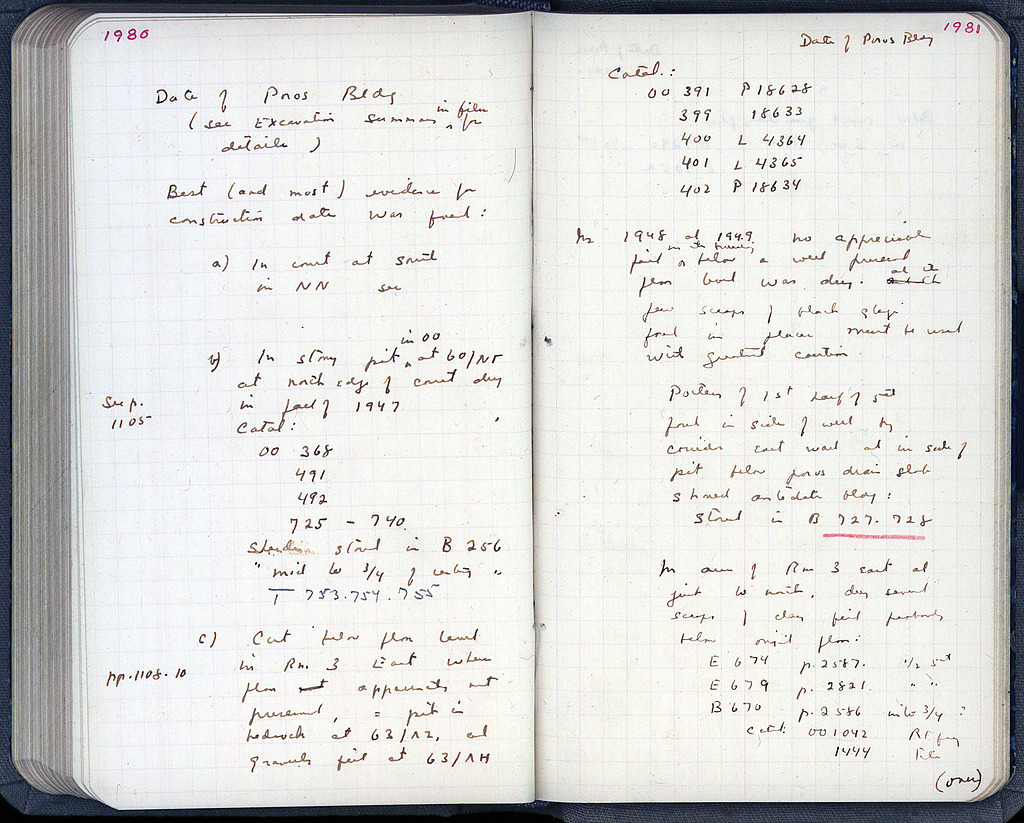 1980
Date of Poros Bldg
(see Excavation Summary in file for
details)
Best (and most) evidence for
construction date was found:
a) In court at south
in NN see
in OO
b) In stony pit, at 60/ΝΓ
at north edge of court dug
See p.
1105
in part of 1947
Catal:
OO 368
491
492
725 - 740
stored in B 256
" mid to 3/4 of century "
T 753.754.755
c) Cut below floor level
pp. 1108-10
in Rm. 3 East where
floor apparently not
preserved, = pit in
bedrock at 63/ΛΖ, and
gravelly fill at 63/ΛΗ
1981
Date of Poros Bldg
Catal.:
OO 391 P 18628
399 18633
400 L 4364
401 L 4365
402 P 18634
In 1948 and 1949 no appreciable
fill or below a well preserved
floor level was dug. and a
few scraps of black glaze
found in places must be used
with greatest caution.
Pottery of 1st half of 5th
found in side of well by
corridor East wall and in side of
pit below poros drain slab
should antedate bldg:
Stored in B 727.728
In area of Rm 3 East and
just to north, dug several
scraps of clay fill probably
below original floor:
E 674 p. 2587. 1/2 5th
E 679 p. 2821. " "
B 670 p. 2586 into 3/4 ?
Catal: OO 1042
1444 Tile
(over)